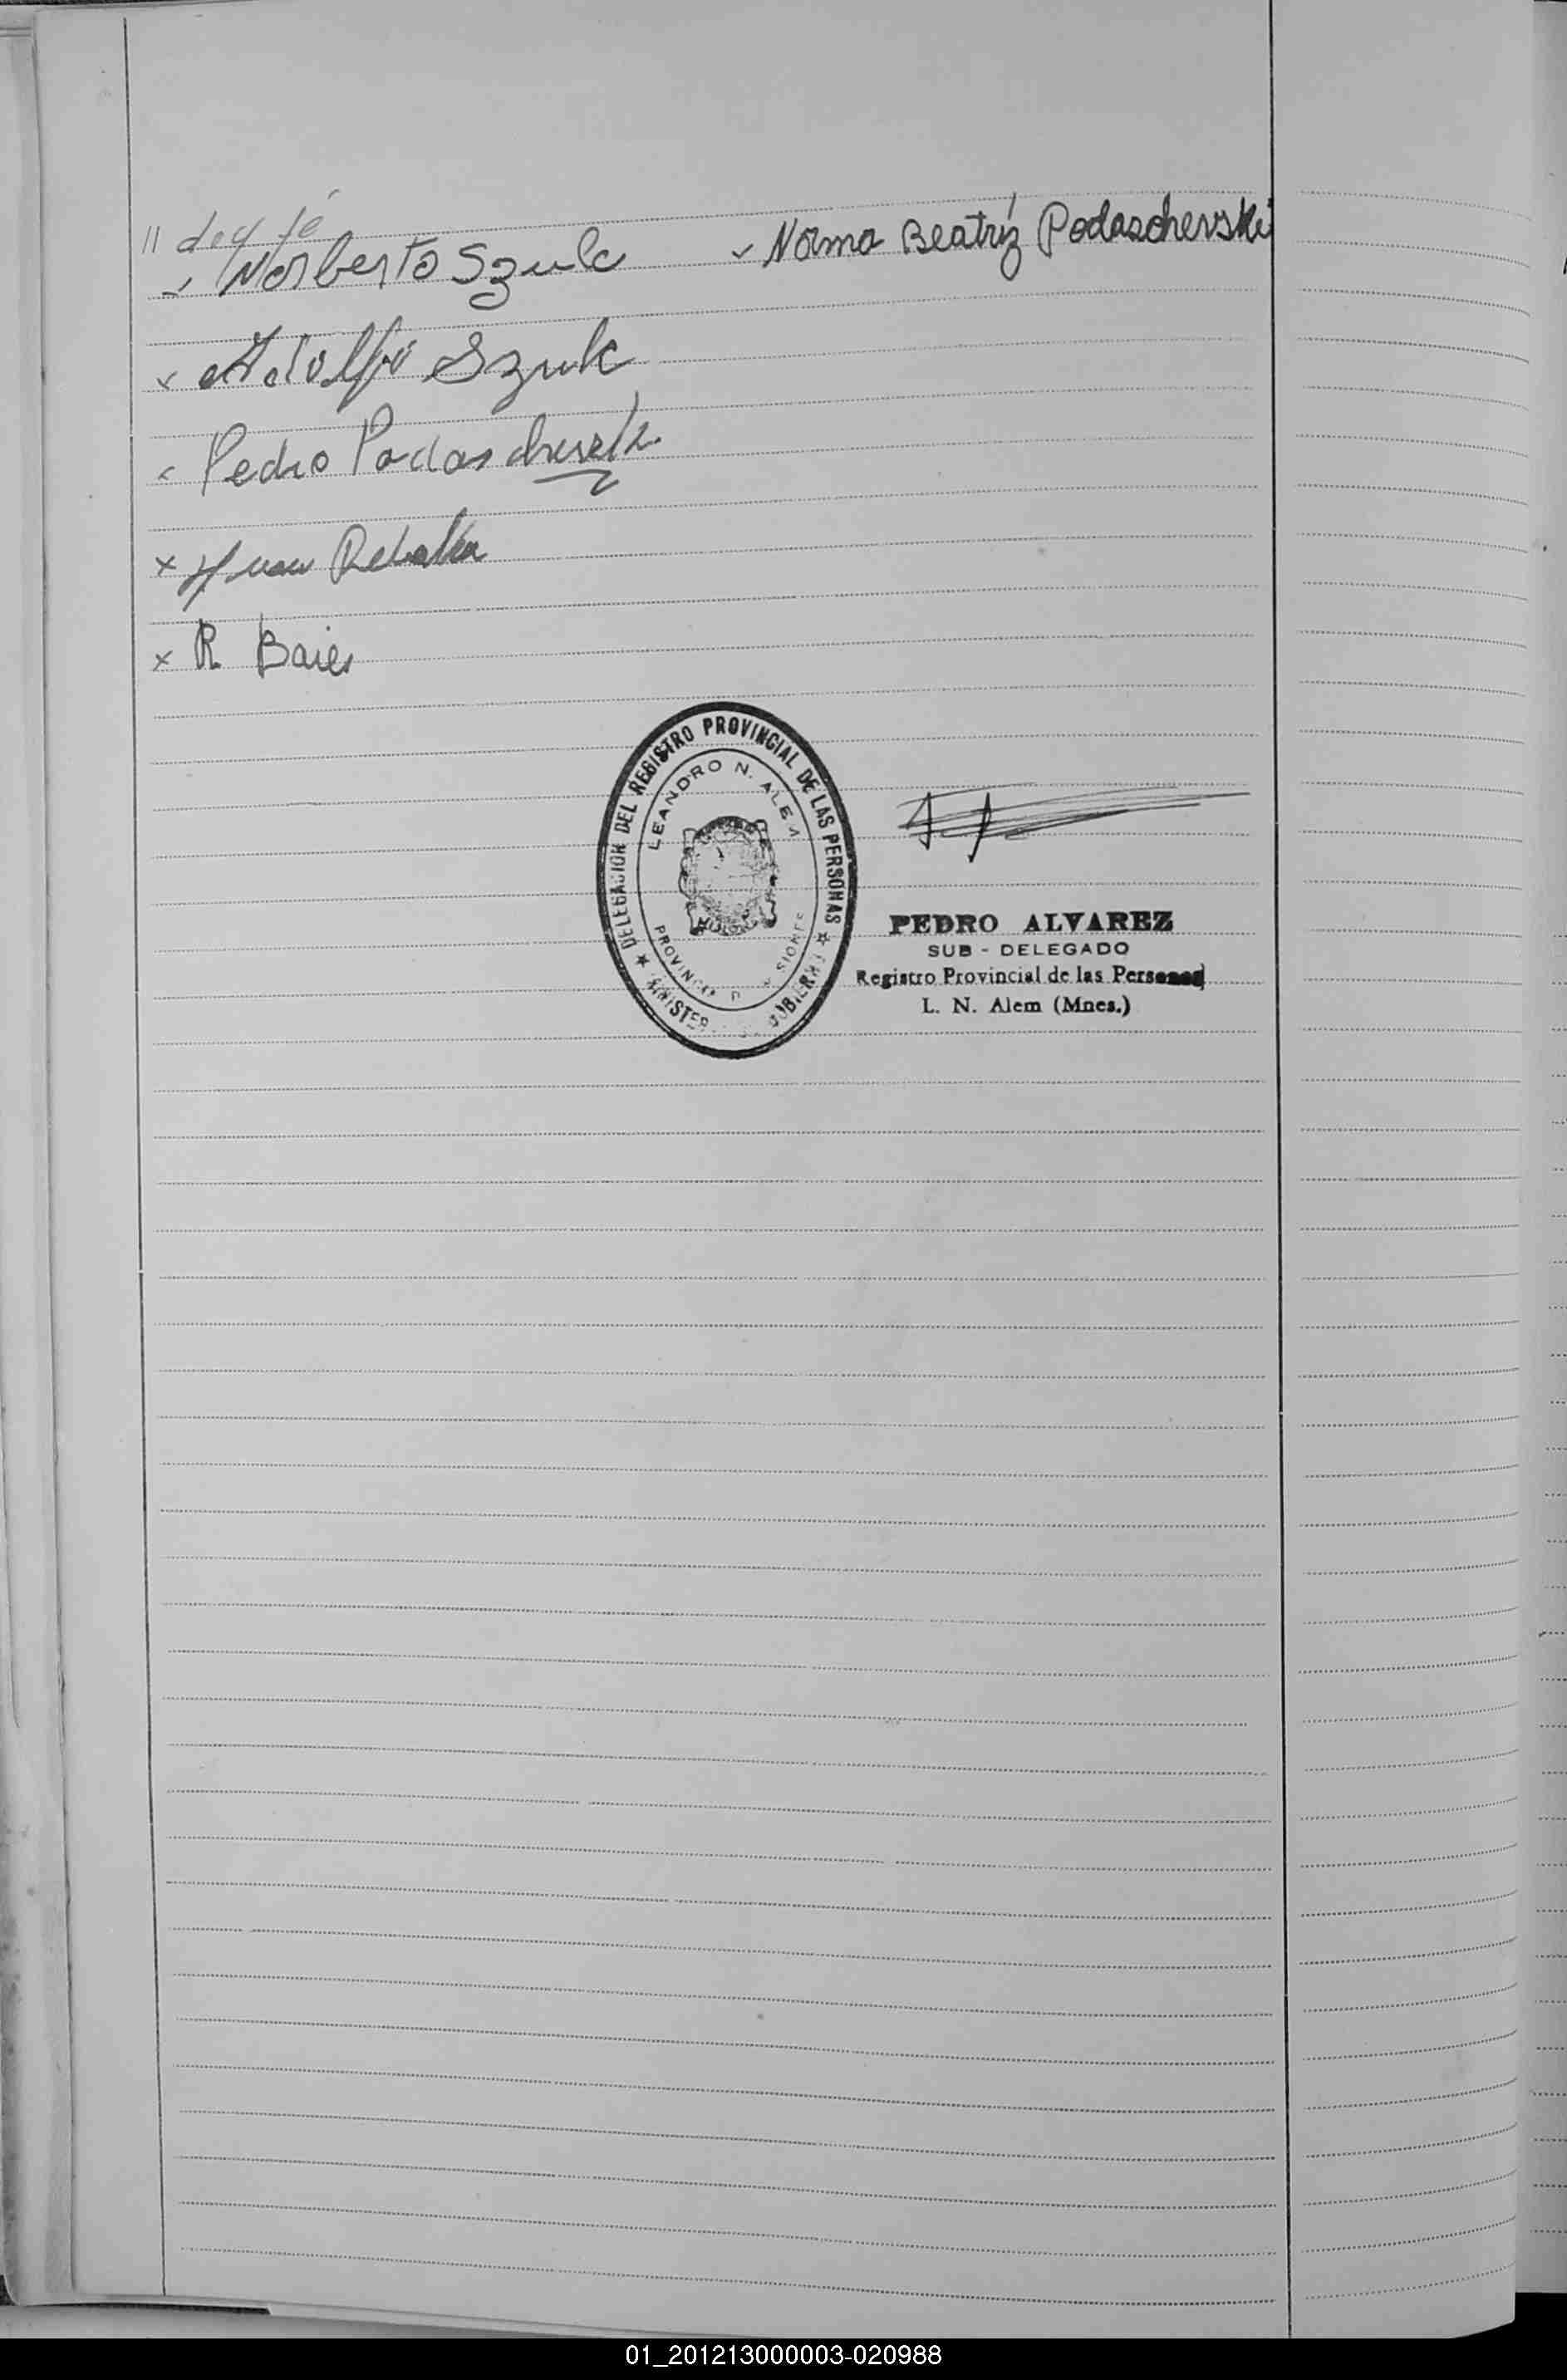 " doy fé
Norberto Szulc
Norma Beatríz Podaschevski
x Adolfo Szulc
Pedro Podaschevski
x Juan
x R Baier
DELEGACION DEL REGISTRO PROVINCIAL DE LAS PERSONAS
LEANDRO N. ALEM
PROVINCIA
PEDRO ALVAREZ
SUB - DELEGADO
Registro Provincial de las Personas
L. N. Alem (Mnes.)
01_201213000003-020988